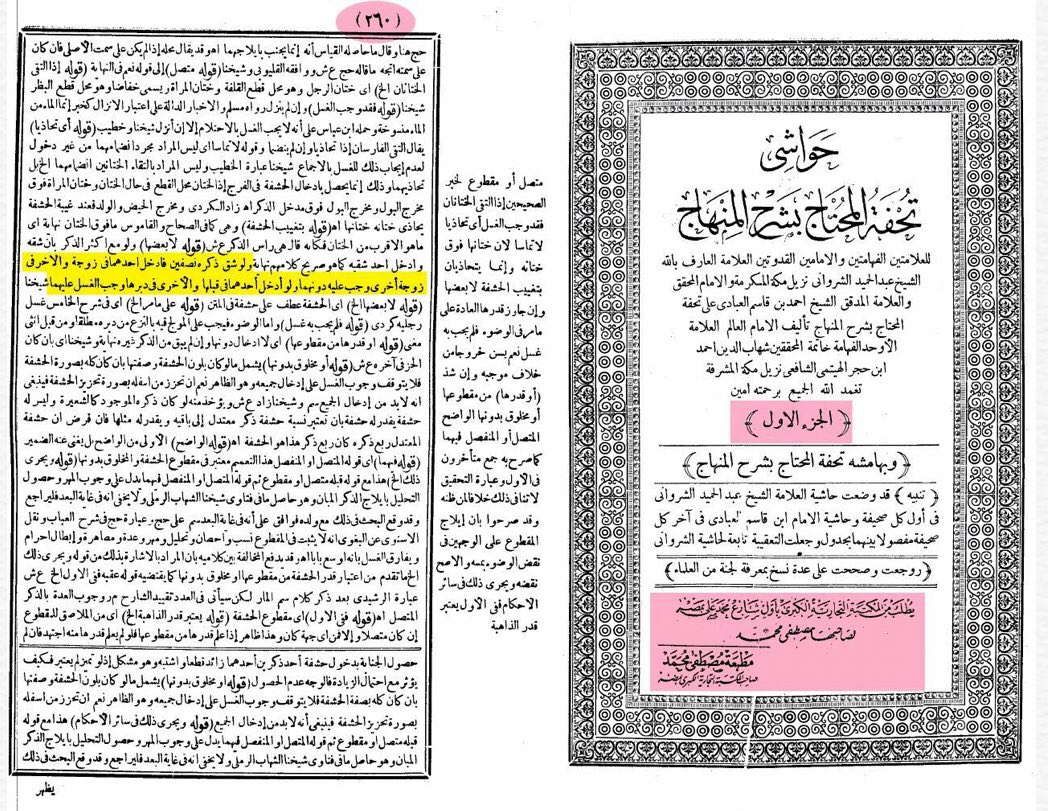 حواشى
تحفة المحتاج بشرح المنهاج
للعلامتين الفهامتين والامامين القدوتين العلامة العارف بالله
الشيخ عبد الحميد الشروانى نزيل مكة المكرمة والامام المحقق
والعلامة المدقق الشيخ احمد بن قاسم العبادى على تحفة
المحتاج بشرح المنهاج تأليف الامام العالم العلامة
الأوحد الفهامة خاتمة المحققين شهاب الدين احمد
ابن حجر الهيتمى الشافعى نزيل مكة المشرفة
تغمد الله الجميع برحمته امين
﴿ الجزء الاول ﴾
﴿ وبهامشه تحفة المحتاج بشرح المنهاج ﴾
﴿ تنبيه ﴾ قد وضعت حاشية العلامة الشيخ عبد الحميد الشروانى
فى أول كل صحيفة وحاشية الامام ابن قاسم العبادى فى آخر كل
صحيفة مفصولا بينهما بجدول وجعلت التعقيبة تابعة لحاشية الشروانى
﴿ روجعت وصححت على عدة نسخ بمعرفة لجنة من العلماء ﴾
يطلب من المكتبة التجارية الكبرى بأول شارع محمد على بمصر
لصاحبها مصطفى محمد
مطبعة مصطفى محمد
صاحب المكتبة التجارية الكبرى بمصر
(٢٦٠)
متصل أو مقطوع لخبر
الصحيحين إذا التقى الختانان
فقد وجب الغسل أى تحاذيا
لا تماسا لان ختانها فوق
ختانه وإنما يتحاذيان
بتغييب الحشفة لا بعضها
وإن جاوز قدرها العادة على
ما مر فى الوضوء فلم يجب به
غسل نعم يسن خروجا من
خلاف موجبه وإن شذ
(أو قدرها) من مقطوعها
أو مخلوق بدونها الواضح
المتصل أو المنفصل فيهما
كما صرح به جمع متأخرون
فى الاول وعبارة التحقيق
لا تنافى ذلك خلافا لمن ظنه
وقد صرحوا بان إيلاج
المقطوع على الوجهين فى
نقض الوضوء بمسه والاصح
نقضه ويجرى ذلك فى سائر
الاحكام فى الاول يعتبر
قدر الذاهبة
حج هنا وقال ما حاصله القياس أنه إنما يجنب بايلاجهما اه وقد يقال محله إذا لم يكن على سمت الاصلى فان كان
على سمته اتجه ما قاله حج ع ش ووافقه القليوبى وشيخنا (قوله متصل) إلى قوله نعم فى النهاية (قوله إذا التقى
الختانان الخ) اى ختان الرجل وهو محل قطع القلفة وختان المرأة ويسمى خفاضا وهو محل قطع البظر
شيخنا (قوله فقد وجب الغسل) وإن لم ينزل رواه مسلم والاخبار الدالة على اعتبار الانزال كخبر إنما الماء من
الماء منسوخة وحمله ابن عباس على أنه لا يجب الغسل بالاحتلام إلا إن أنزل شيخنا وخطيب (قوله أى تحاذيا)
يقال التقى الفارسان إذا تحاذيا وإن لم ينضما وقوله لا تماسا اى ليس المراد مجرد انضمامهما من غير دخول
لعدم إيجاب ذلك للغسل بالاجماع شيخنا عبارة الخطيب وليس المراد بالتقاء الختانين انضمامهما الخ بل
تحاذيهما وذلك إنما يحصل بادخال الحشفة فى الفرج إذ الختان محل القطع فى حال الختان وختان المرأة فوق
مخرج البول ومخرج البول فوق مدخل الذكر اه زاد الكردى ومخرج الحيض والولد فعند غيبة الحشفة
يحاذى ختانه ختانها اه (قوله بتغييب الحشفة) وهى كما فى الصحاح والقاموس ما فوق الختان نهاية اى
ما هو الاقرب من الختان فكأنه قال هى راس الذكر ع ش (قوله لا بعضها) ولو مع اكثر الذكر بان شقه
وادخل احد شقيه كما هو صريح كلامهم نهاية ولو شق ذكره نصفين فادخل احدهما فى زوجة والاخر فى
زوجة أخرى وجب عليه دونهما ولو أدخل أحدهما فى قبلها والآخر فى دبرها وجب الغسل عليهما شيخنا
(قوله لا بعضها الخ) اى الحشفة عطف على حشفة فى المتن (قوله على ما مر الخ) اى فى شرح الخامس غسل
رجليه كردى (قوله فلم يجب به غسل) واما الوضوء فيجب على المولج فيه بالنزع من دبره مطلقا او من قبل انثى
مغنى (قوله او قدرها من مقطوعها) اى لا ادخال دونها وإن لم يبق من الذكر غيره نهاية وشيخنا اى بان كان
الحز فى آخره ع ش (قوله أو مخلوق بدونها) يشمل ما لو كان بلون الحشفة وصفتها بأن كان كله بصورة الحشفة
فلا يتوقف وجوب الغسل على إدخال جميعه وهو الظاهر نعم ان تحزز من اسفله بصورة تحزيز الحشفة فينبغى
انه لا بد من إدخال الجميع سم وشيخنا زاد ع ش ويؤخذ منه لو كان ذكره الموجود كالشعيرة وليس له
حشفة يقدر له حشفة بان تعتبر نسبة حشفة ذكر معتدل إلى باقيه ويقدر له مثلها فان فرض ان حشفة
المعتدل ربع ذكره كان ربع ذكر هذا هو الحشفة اه (قوله الواضح) الأولى من الواضح بل يغنى عنه الضمير
(قوله فيهما) اى قوله المتصل او المنفصل هذا التعميم معتبر فى مقطوع الحشفة والمخلوق بدونها (قوله ويجرى
ذلك الخ) هذا مع قوله قبله متصل او مقطوع ثم قوله المتصل او المنفصل فيهما يدل على وجوب المهر وحصول
التحليل بايلاج الذكر المبان وهو حاصل ما فى فتاوى شيخنا الشهاب الرملى ولا يخفى انه فى غاية البعد فليراجع
وقد وقع البحث فى ذلك مع ولده فوافق على أنه فى غاية البعد سم على حج وعبارة حج فى شرح العباب ونقل
الاسنوى عن البغوى انه لا يثبت فى المقطوع نسب وإحصان وتحليل ومهر وعدة ومصاهرة وإبطال احرام
ويفارق الغسل بانه اوسع بابا اه وقد يدفع المخالفة بين كلاميه بان المراد بالاشارة بذلك من قوله ويجرى ذلك
الخ ما تقدم من اعتبار قدر الحشفة من مقطوعها او مخلوق بدونها كما يقتضيه قوله عقبه فى الاول الخ ع ش
عبارة الرشيدى بعد ذكر كلام سم المار لكن سيأتى فى العدد تقييد الشارح م ر وجوب العدة بالذكر
المتصل اه (قوله فى الاول) اى مقطوع الحشفة (قوله يعتبر قدر الذاهبة الخ) اى من الملاصق للمقطوع
إن كان متصلا وإلا فمن اى جهة كان وهذا ظاهر إذا علم قدرها من مقطوعها فلو لم يعلم قدرها منه اجتهد فان لم
حصول الجنابة بدخول حشفة أحد ذكرين أحدهما زائد قطعا واشتبه وهو مشكل إذ لو تميز لم يعتبر فكيف
يؤثر مع احتمال الزيادة فالوجه عدم الحصول (قوله او مخلوق بدونها) يشمل ما لو كان بلون الحشفة وصفتها
بان كان كله بصفة الحشفة فلا يتوقف وجوب الغسل على إدخال جميعه وهو الظاهر نعم ان تحزز من اسفله
بصورة تحزيز الحشفة فينبغى أنه لا بد من إدخال الجميع (قوله ويجرى ذلك فى سائر الأحكام) هذا مع قوله
قبله متصل او مقطوع ثم قوله المتصل او المنفصل فيهما يدل على وجوب المهر وحصول التحليل بايلاج الذكر
المبان وهو حاصل ما فى فتاوى شيخنا الشهاب الرملى ولا يخفى انه فى غاية البعد فليراجع وقد وقع البحث فى ذلك
يظهر